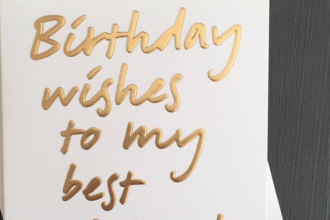 Birthday
wishes
to my
best